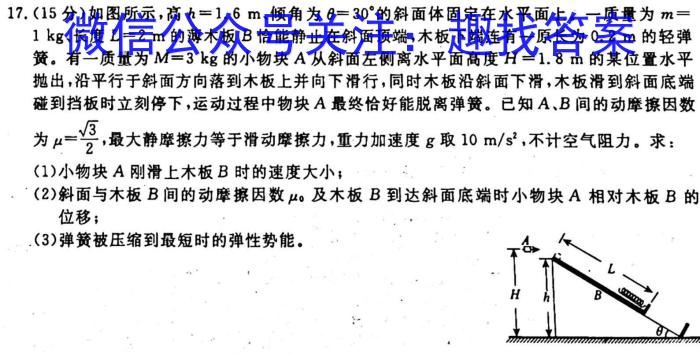 17.(15分)如图所示,高h=1.6 m,倾角为θ=30°的斜面体固定在水平面上,一质量为m=
1 kg 长度L=2 m的薄木板B恰能静止在斜面顶端,木板下端连有一原长为 的轻弹
微信公众号关注:趣找答案
簧。有一质量为M=3 kg的小物块A从斜面左侧离水平面高度H=1.8 m的某位置水平
抛出,沿平行于斜面方向落到木板上并向下滑行,同时木板沿斜面下滑,木板滑到斜面底端
碰到挡板时立刻停下,运动过程中物块A最终恰好能脱离弹簧。已知A、B间的动摩擦因数
为μ=√3/2,最大静摩擦力等于滑动摩擦力,重力加速度g取10 m/s²,不计空气阻力。求:
(1)小物块A刚滑上木板B时的速度大小;
(2)斜面与木板B间的动摩擦因数μ₀及木板B到达斜面底端时小物块A相对木板B的
位移;
(3)弹簧被压缩到最短时的弹性势能。
A
L
H
h
B
θ